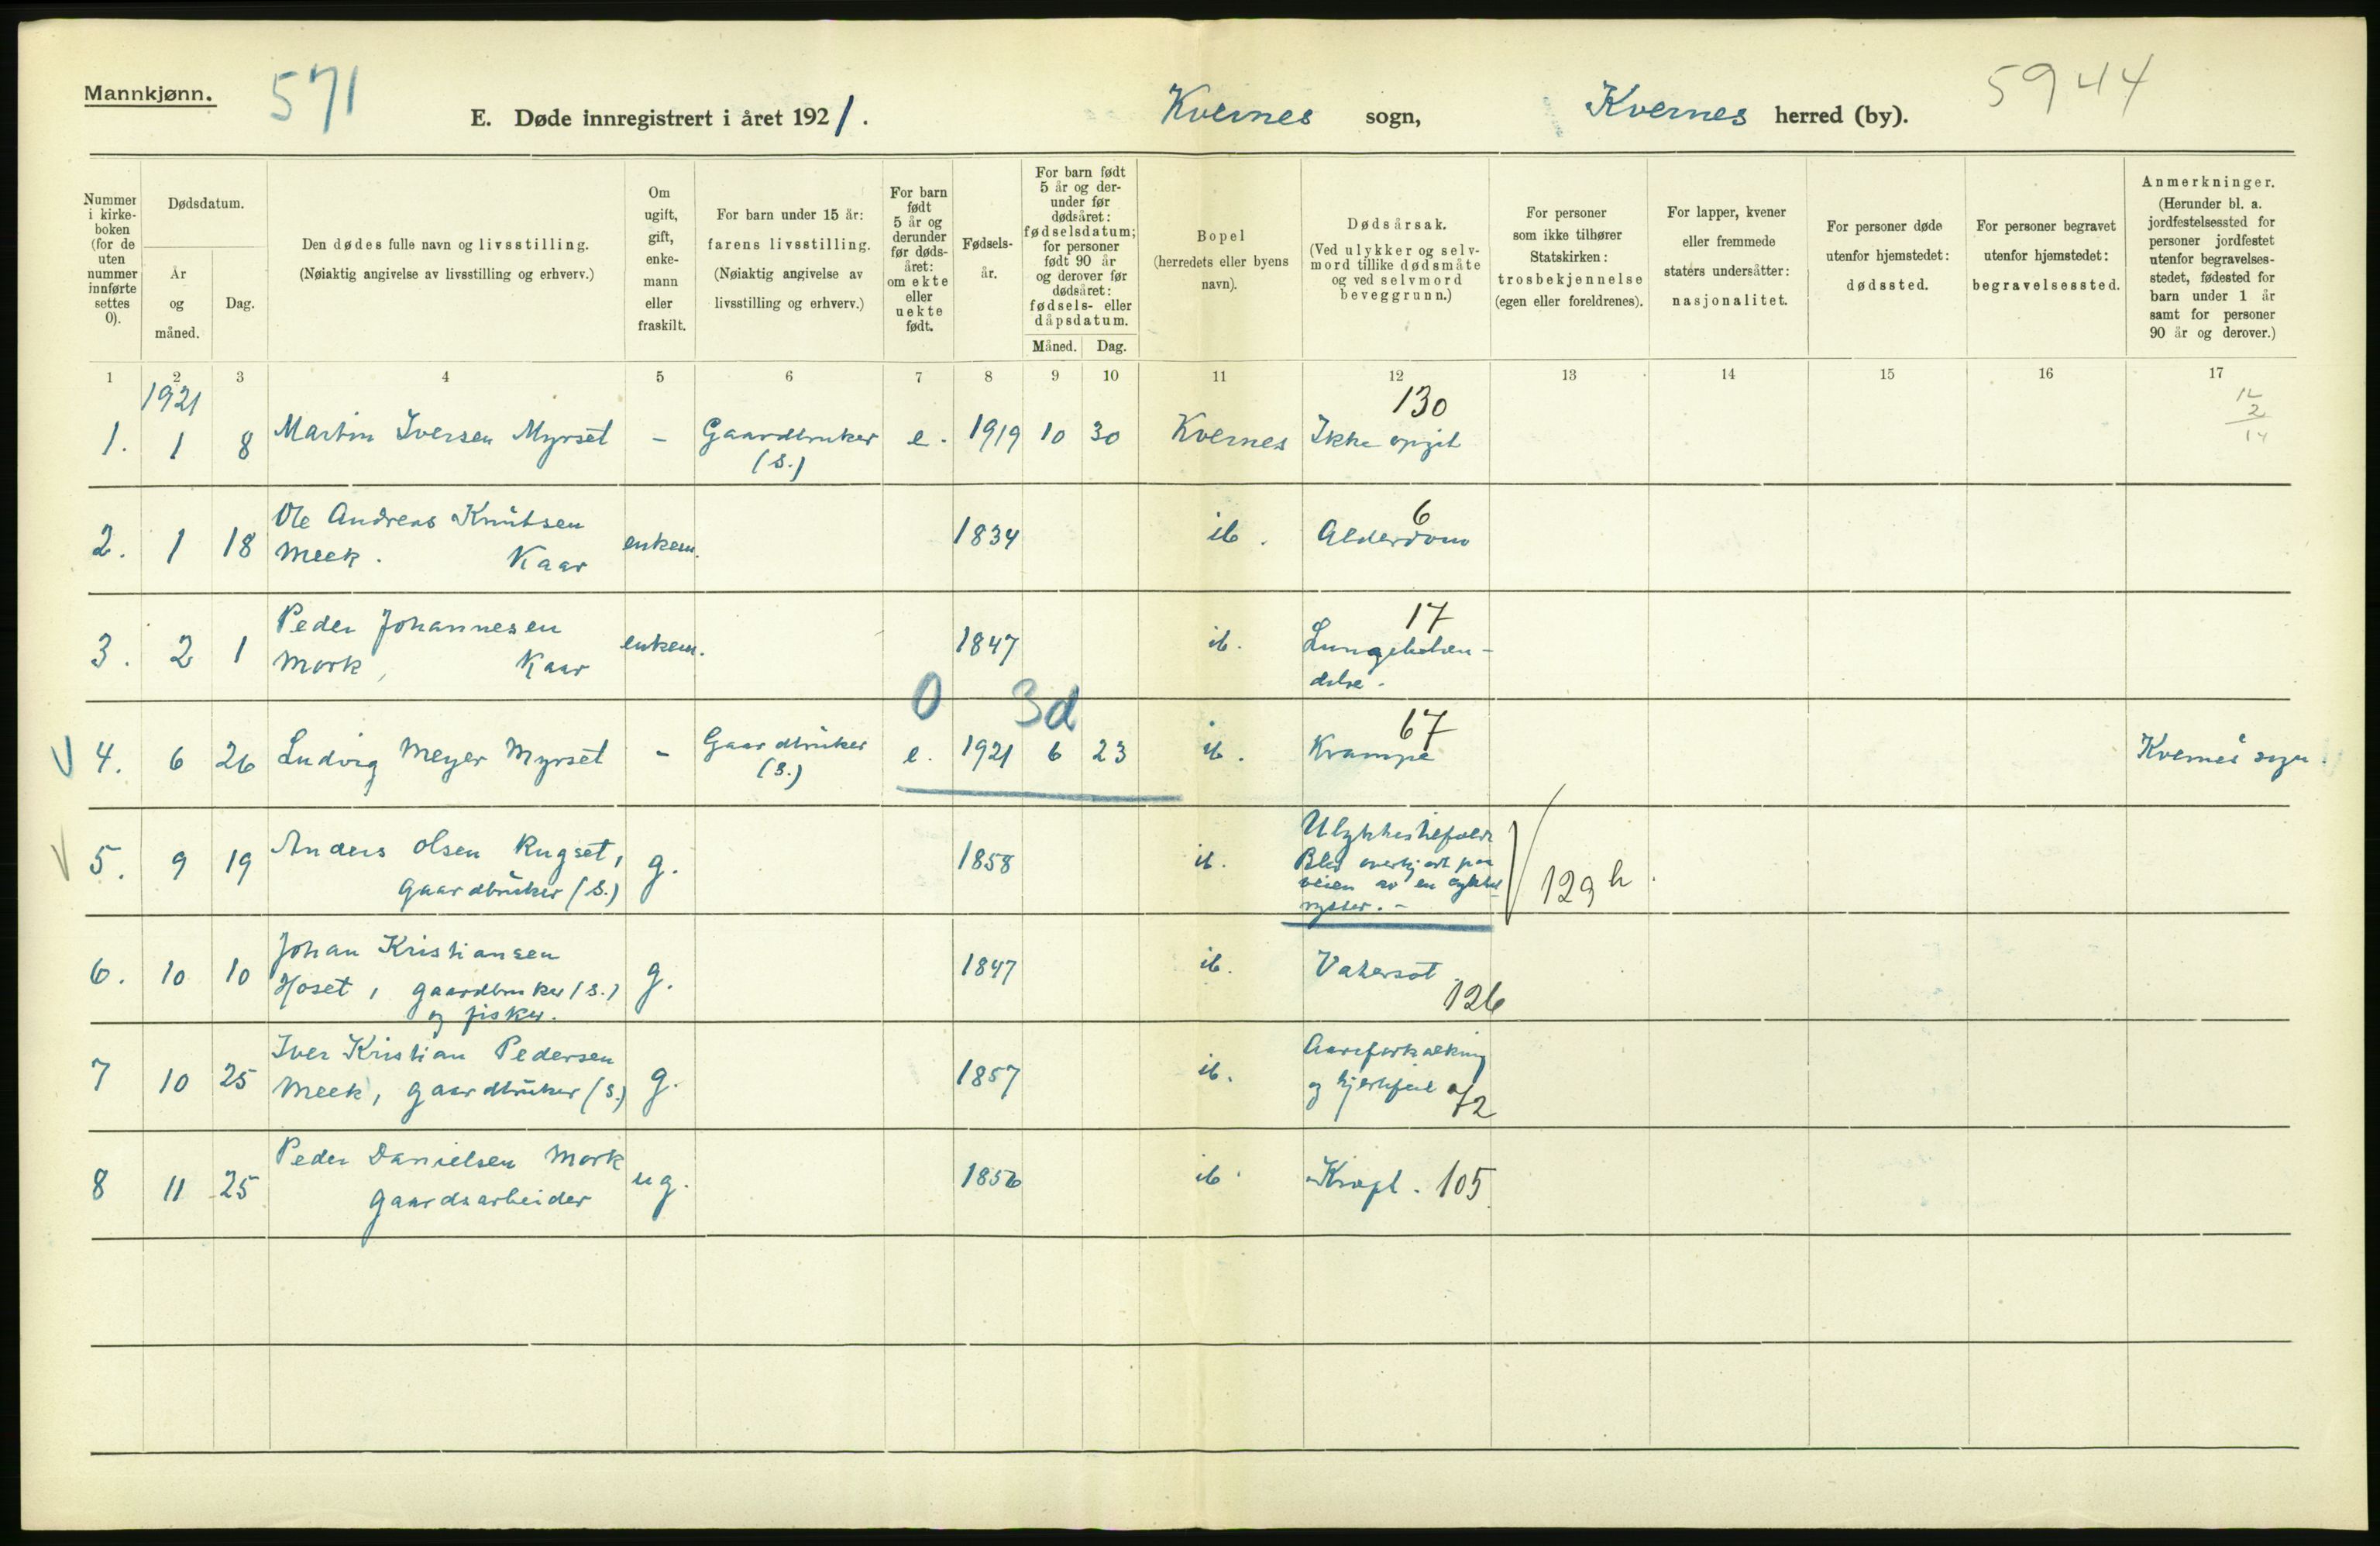 Mannkjønn.
571
E. Døde innregistrert i året 1921.
Kvernes sogn,
Kvernes herred (by).
5944
Nummer i kirkeboken (for de uten nummer innførte settes 0).
Dødsdatum.
År og måned.
Dag.
Den dødes fulle navn og livsstilling.
(Nøiaktig angivelse av livsstilling og erhverv.)
Om ugift, gift, enkemann eller fraskilt.
For barn under 15 år: farens livsstilling.
(Nøiaktig angivelse av livsstilling og erhverv.)
For barn født 5 år og derunder før dødsåret: om ekte eller uekte født.
Fødselsår.
For barn født 5 år og derunder før dødsåret: fødselsdatum; for personer født 90 år og derover før dødsåret: fødsels- eller dåpsdatum.
Måned. Dag.
Bopel
(herredets eller byens navn).
Dødsårsak.
(Ved ulykker og selvmord tillike dødsmåte og ved selvmord beveggrunn.)
For personer som ikke tilhører Statskirken: trosbekjennelse (egen eller foreldrenes).
For lapper, kvener eller fremmede staters undersåtter: nasjonalitet.
For personer døde utenfor hjemstedet: dødssted.
For personer begravet utenfor hjemstedet: begravelsessted.
Anmerkninger.
(Herunder bl. a. jordfestelsessted for personer jordfestet utenfor begravelsesstedet, fødested for barn under 1 år samt for personer 90 år og derover.)
1 2 3 4 5 6 7 8 9 10 11 12 13 14 15 16 17
1921
130
12
2
14
1. 1 8 Martin Iversen Myrset - Gaardbruker e. 1919 10 30 Kvernes Ikke opgit
(S.)
Ole Andreas Knutsen
6
2. 1 18 Meek. Kaar enkem. 1834 ib. Alderdom
Peder Johannesen
17
3. 2 1 Mork, Kaar enkem. 1847 ib. Lungebeten-
delse.
0 3d
67
V 4. 6 26 Ludvig Meyer Myrset - Gaardbruker e. 1921 6 23 ib. Krampe Kvernes sogn.
(S.)
V 5. 9 19 Anders Olsen Rugset, g. 1858 ib. Ulykkestilfælde
Gaardbruker (S.)
Blev overkjørt paa
veien av en cykkel-
rytter. -
129 h.
Johan Kristiansen
6. 10 10 Hoset, gaardbruker (S.) g. 1847 ib. Vatersot
og fisker.
126
Iver Kristian Pedersen
Aareforkalkning
7 10 25 Meek, gaardbruker (S.) g. 1857 ib. og hjertefeil
72
Peder Danielsen Mork
8 11 25 gaardsarbeider ug. 1856 ib. 105